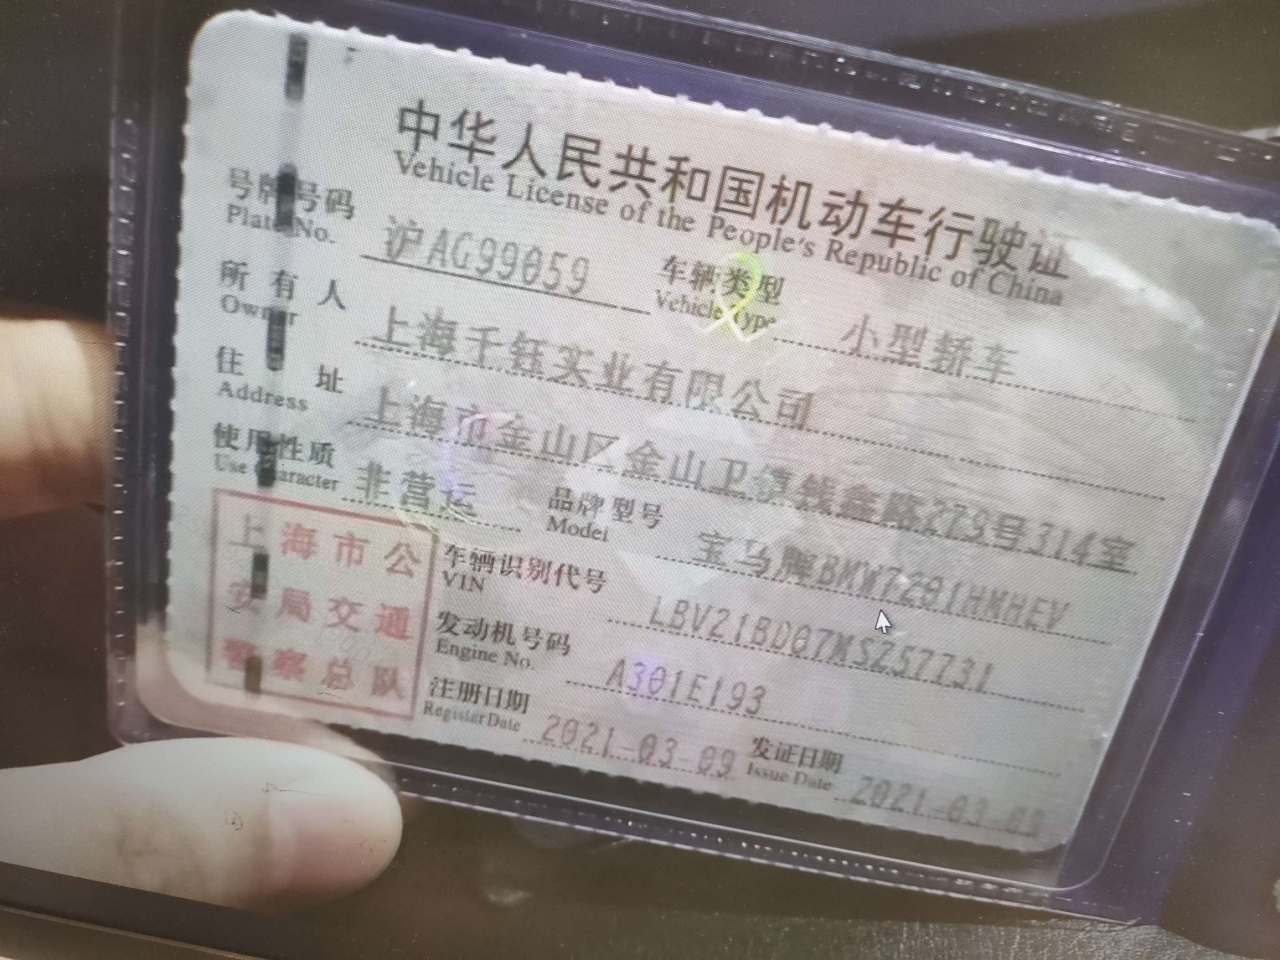 中华人民共和国机动车行驶证
Vehicle License of the People's Republic of China
号牌号码 沪AG99059 车辆类型 小型轿车
Plate No. Vehicle Type
所有人 上海千钰实业有限公司
Owner
住址 上海市金山区金山卫镇钱鑫路275号314室
Address
使用性质 非营运 品牌型号 宝马牌BMW7201HMHEV
Use Character Model
上海市公
安局交通
警察总队
车辆识别代号 LBV21BD07MSZ57731
VIN
发动机号码 A301E193
Engine No.
注册日期 2021-03-09 发证日期 2021-03-09
Register Date Issue Date